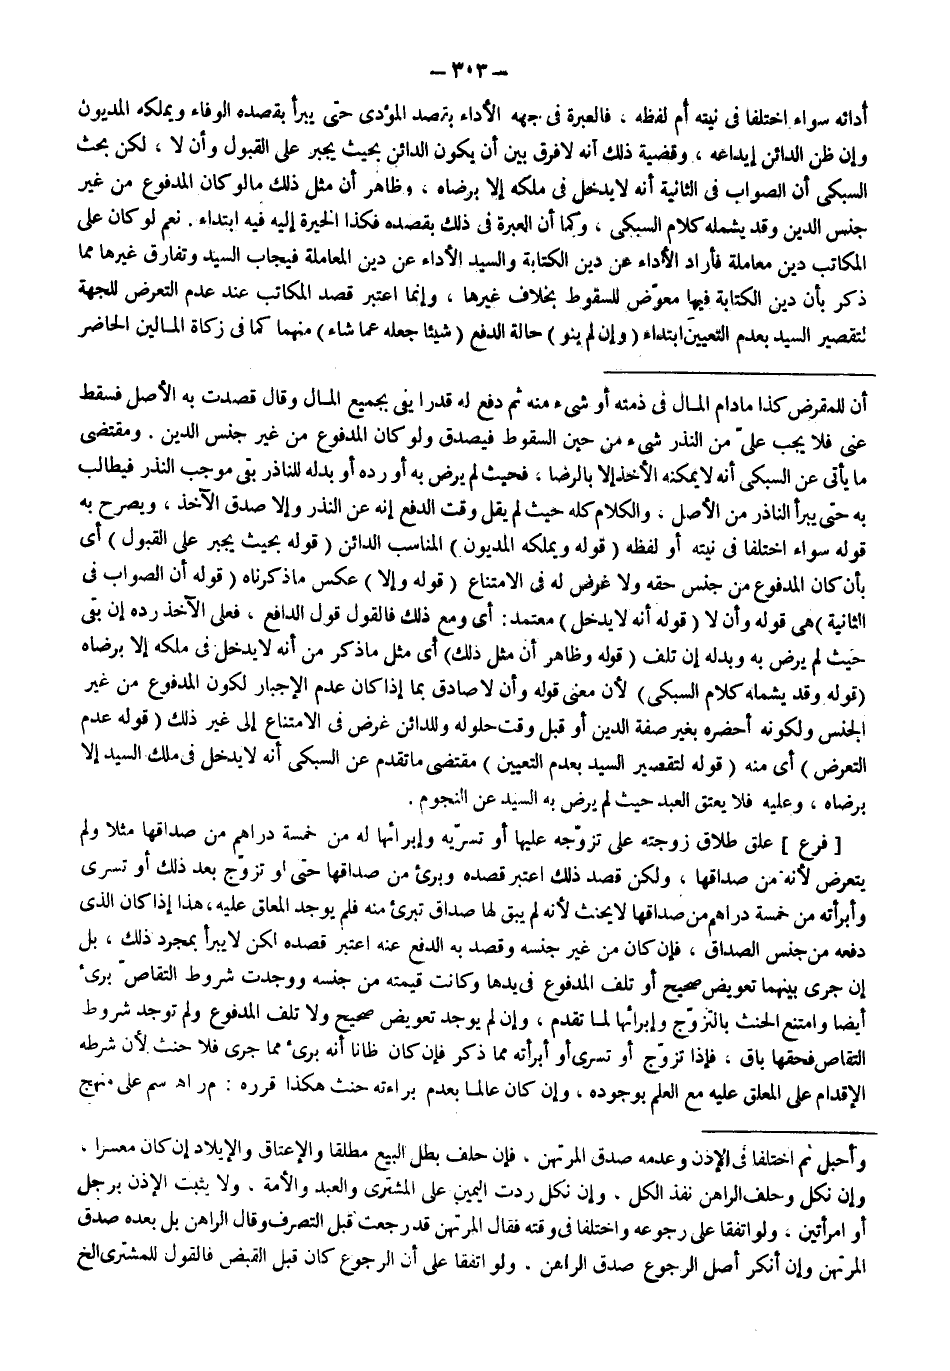 – ٣٠٣ –
أدائه سواء اختلفا فى نيته أم لفظه ، فالعبرة فى جهه الأداء بقصد المؤدى حتى يبرأ بقصده الوفاء ويملكه المديون
وإن ظن الدائن إيداعه ، وقضية ذلك أنه لافرق بين أن يكون الدائن بحيث يجبر على القبول وأن لا ، لكن بحث
السبكى أن الصواب فى الثانية أنه لايدخل فى ملكه إلا برضاه ، وظاهر أن مثل ذلك مالو كان المدفوع من غير
جنس الدين وقد يشمله كلام السبكى ، وكما أن العبرة فى ذلك بقصده فكذا الخيرة إليه فيه ابتداء . نعم لو كان على
المكاتب دين معاملة فأراد الأداء عن دين الكتابة والسيد الأداء عن دين المعاملة فيجاب السيد وتفارق غيرها مما
ذكر بأن دين الكتابة فيها معوّض للسقوط بخلاف غيرها ، وإنما اعتبر قصد المكاتب عند عدم التعرض للجهة
لتقصير السيد بعدم التعيين ابتداء ( وإن لم ينو ) حالة الدفع ( شيئا جعله عما شاء ) منهما كما فى زكاة المالين الحاضر
أن للمقرض كذا مادام المال فى ذمته أو شىء منه ثم دفع له قدرا يفى بجميع المال وقال قصدت به الأصل فسقط
عنى فلا يجب علىّ من النذر شىء من حين السقوط فيصدق ولو كان المدفوع من غير جنس الدين . ومقتضى
ما يأتى عن السبكى أنه لايمكنه الأخذ إلا بالرضا ، فحيث لم يرض به أو رده أو بدله للناذر بقى موجب النذر فيطالب
به حتى يبرأ الناذر من الأصل ، والكلام كله حيث لم يقل وقت الدفع إنه عن النذر وإلا صدق الآخذ ، ويصرح به
قوله سواء اختلفا فى نيته أو لفظه ( قوله ويملكه المديون ) المناسب الدائن ( قوله بحيث يجبر على القبول ) أى
بأن كان المدفوع من جنس حقه ولا غرض له فى الامتناع ( قوله وإلا ) عكس ماذكرناه ( قوله أن الصواب فى
الثانية ) هى قوله وأن لا ( قوله أنه لايدخل ) معتمد : أى ومع ذلك فالقول قول الدافع ، فعلى الآخذ رده إن بقى
حيث لم يرض به وبدله إن تلف ( قوله وظاهر أن مثل ذلك) أى مثل ماذكر من أنه لايدخل فى ملكه إلا برضاه
(قوله وقد يشمله كلام السبكى ) لأن معنى قوله وأن لا صادق بما إذا كان عدم الإجبار لكون المدفوع من غير
الجنس ولكونه أحضره بغير صفة الدين أو قبل وقت حلوله وللدائن غرض فى الامتناع إلى غير ذلك ( قوله عدم
التعرض ) أى منه ( قوله لتقصير السيد بعدم التعيين ) مقتضى ماتقدم عن السبكى أنه لايدخل فى ملك السيد إلا
برضاه ، وعليه فلا يعتق العبد حيث لم يرض به السيد عن النجوم .
[ فرع ] علق طلاق زوجته على تزوّجه عليها أو تسرّيه وإبرائها له من خمسة دراهم من صداقها مثلا ولم
يتعرض لأنه من صداقها ، ولكن قصد ذلك اعتبر قصده وبرئ من صداقها حتى لو تزوّج بعد ذلك أو تسرى
وأبرأته من خمسة دراهم من صداقها لايحنث لأنه لم يبق لها صداق تبرئ منه فلم يوجد المعلق عليه ، هذا إذا كان الذى
دفعه من جنس الصداق ، فإن كان من غير جنسه وقصد به الدفع عنه اعتبر قصده لكن لايبرأ بمجرد ذلك ، بل
إن جرى بينهما تعويض صحيح أو تلف المدفوع فى يدها وكانت قيمته من جنسه ووجدت شروط التقاصّ برئ
أيضا وامتنع الحنث بالتزوّج وإبرائها لما تقدم ، وإن لم يوجد تعويض صحيح ولا تلف المدفوع ولم توجد شروط
التقاص فحقها باق ، فإذا تزوّج أو تسرى أو أبرأته مما ذكر فإن كان ظانا أنه برئ مما جرى فلا حنث لأن شرطه
الإقدام على المعلق عليه مع العلم بوجوده ، وإن كان عالما بعدم براءته حنث هكذا قرره : م ر اه سم على منهج
وأحبل ثم اختلفا فى الإذن وعدمه صدق المرتهن . فإن حلف بطل البيع مطلقا والإعتاق والإيلاد إن كان معسرا .
وإن نكل وحلف الراهن نفذ الكل . وإن نكل ردت اليمين على المشترى والعبد والأمة . ولا يثبت الإذن برجل
أو امرأتين . ولو اتفقا على رجوعه واختلفا فى وقته فقال المرتهن قد رجعت قبل التصرف وقال الراهن بل بعده صدق
المرتهن وإن أنكر أصل الرجوع صدق الراهن . ولو اتفقا على أن الرجوع كان قبل القبض فالقول للمشترى الخ